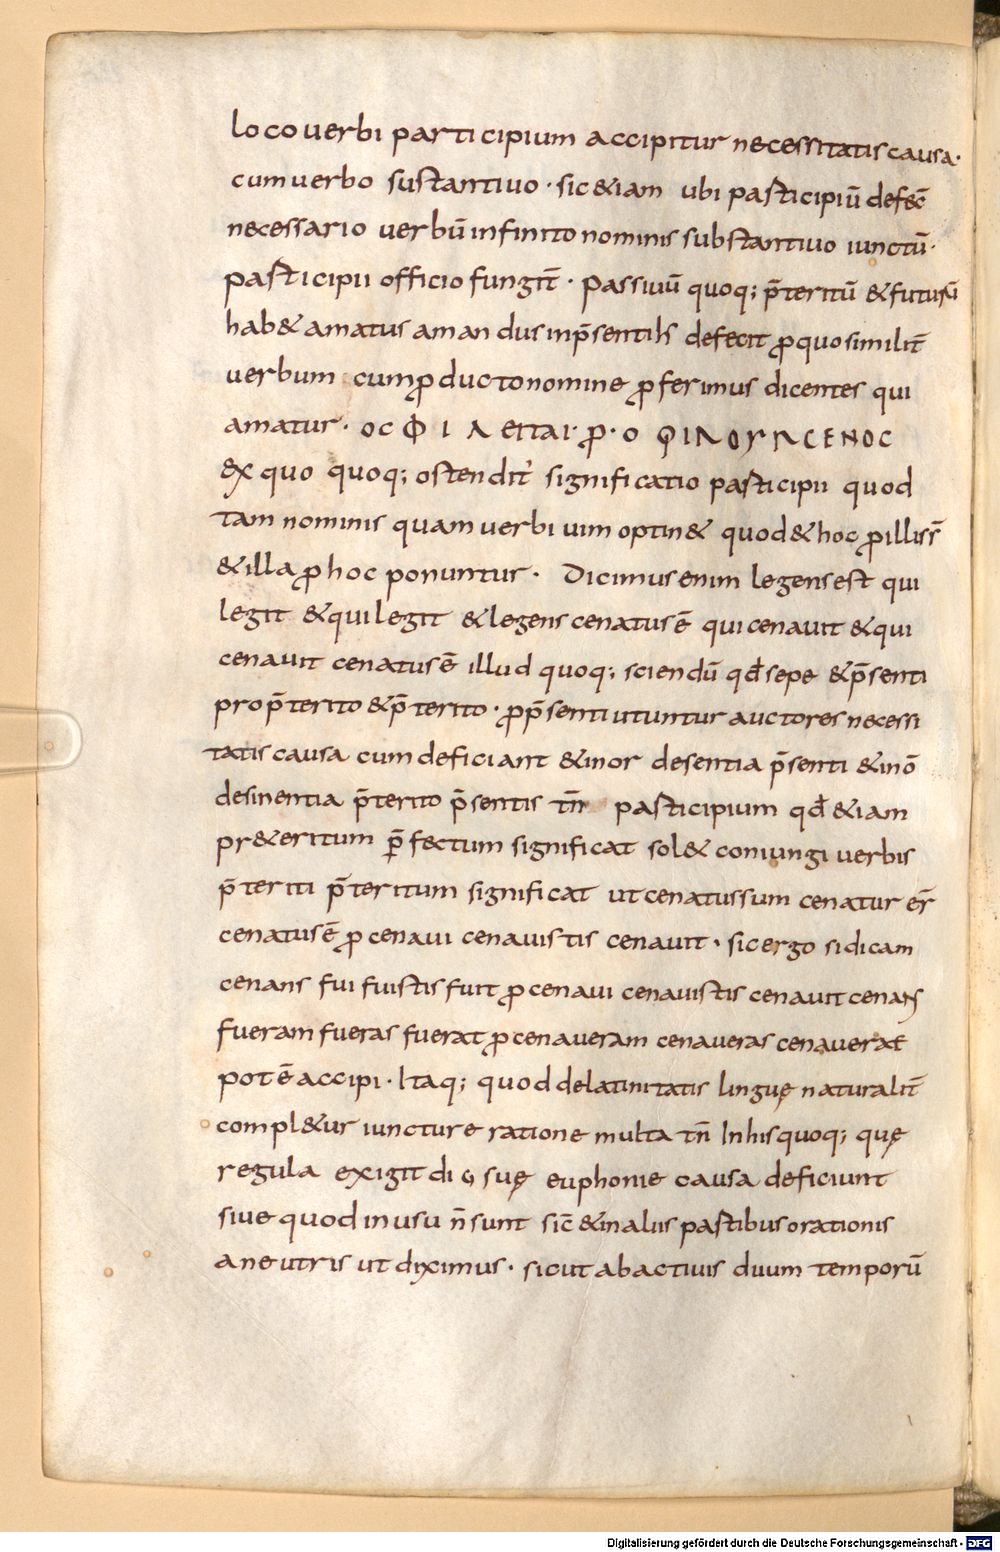 loco verbi participium accipitur necessitatis causa·
cum verbo sustantivo · sic &iam ubi participiū defec̄
necessario verbū infinito nominis substantivo iunctū·
participii officio fungit̄ · passivū quoq; p̄teritū & futurū
hab& amatus amandus in p̄sentib; defecit ꝓ quo similit̄
verbum cum ꝓducto nomine ꝓferimus dicentes qui
amatur · ΟC ΦΙΛΕΙΤΑΙ · ꝓ · Ο ΦΙΛΟΥΜΕΝΟC
Ex quo quoq; ostendit̄ significatio participii quod
tam nominis quam verbi vim optin& quod & hoc ꝓ illis
& illa ꝓ hoc ponuntur · Dicimus enim legens est qui
legit & qui legit & legens cenatus ē qui cenavit & qui
cenavit cenatus ē illud quoq; sciendū qđ sepe & p̄senti
pro p̄terito & p̄terito · ꝓ p̄senti utuntur auctores necessi
tatis causa cum deficiant & in or desentia p̄senti & in ō
desinentia p̄terito p̄sentis tn̄ participium qđ &iam
pr&eritum ꝑfectum significat sol& coniungi verbis
p̄teriti p̄teritum significat ut cenatus sum cenatur er̄
cenatus ē ꝓ cenavi cenavistis cenavit · sic ergo si dicam
cenans fui fuistis fuit ꝓ cenavi cenavistis cenavit cenans
fueram fueras fuerat ꝓ cenaveram cenaveras cenaverat
pot ē accipi · Itaq; quod de latinitatis linguę naturalit̄
compl&ur iuncture ratione multa tn̄ In his quoq; quę
regula exigit di ꝯ suę euphonie causa deficiunt
sive quod in usu n̄ sunt sic̄ & in aliis partibus orationis
a neutris ut diximus · sicut ab activis duum temporū
Digitalisierung gefördert durch die Deutsche Forschungsgemeinschaft - DFG